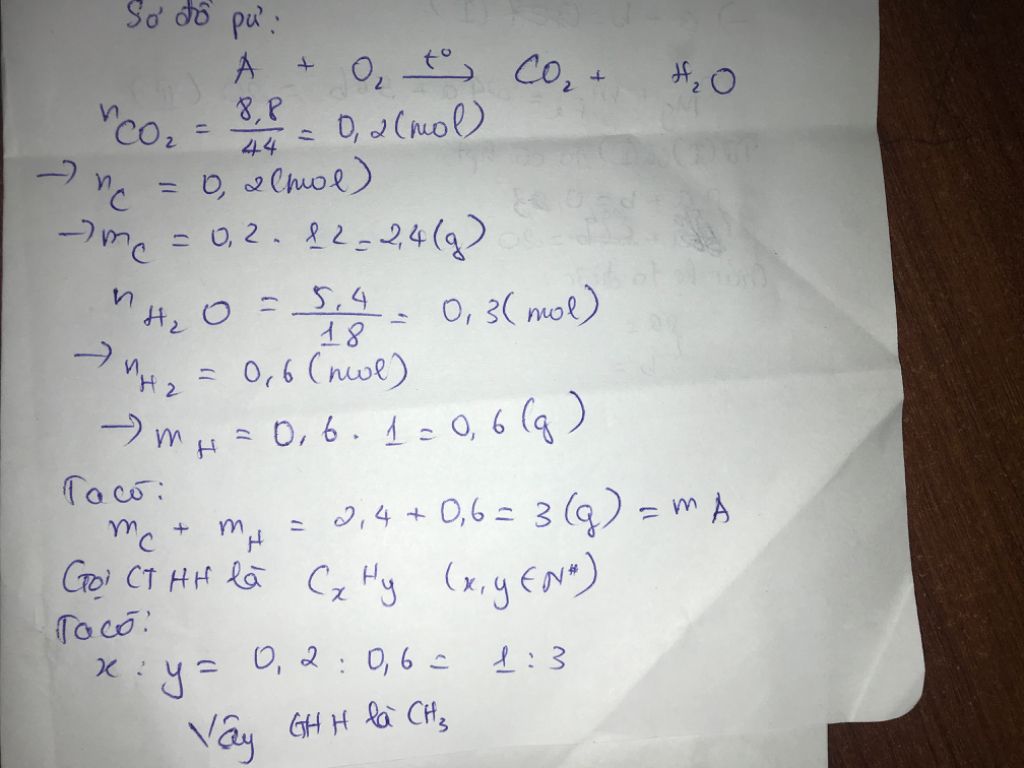 Sơ đồ pứ:
A + O₂ t° → CO₂ + H₂O
nCO₂ = 8,8/44 = 0,2(mol)
→ nC = 0,2(mol)
→ mC = 0,2 . 12 = 2,4(g)
nH₂O = 5,4/18 = 0,3(mol)
→ nH₂ = 0,6(mol)
→ mH = 0,6 . 1 = 0,6(g)
Ta có:
mC + mH = 2,4 + 0,6 = 3(g) = mA
Gọi CTHH là CxHy (x,y ∈ N*)
Ta có:
x : y = 0,2 : 0,6 = 1 : 3
Vậy CTHH là CH₃